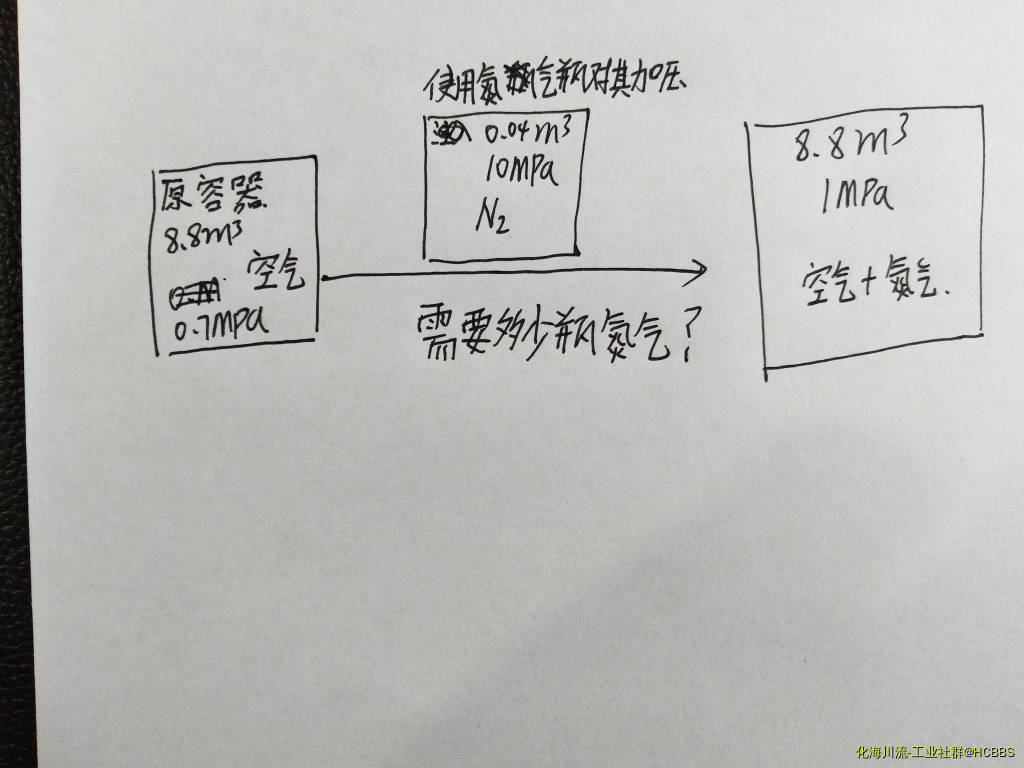 使用氮气瓶对其加压
0.04m³
10MPa
N₂
原容器
8.8m³
空气
0.7MPa
需要多少瓶氮气?
8.8m³
1MPa
空气+氮气.
化海川流-工业社群@HCBBS